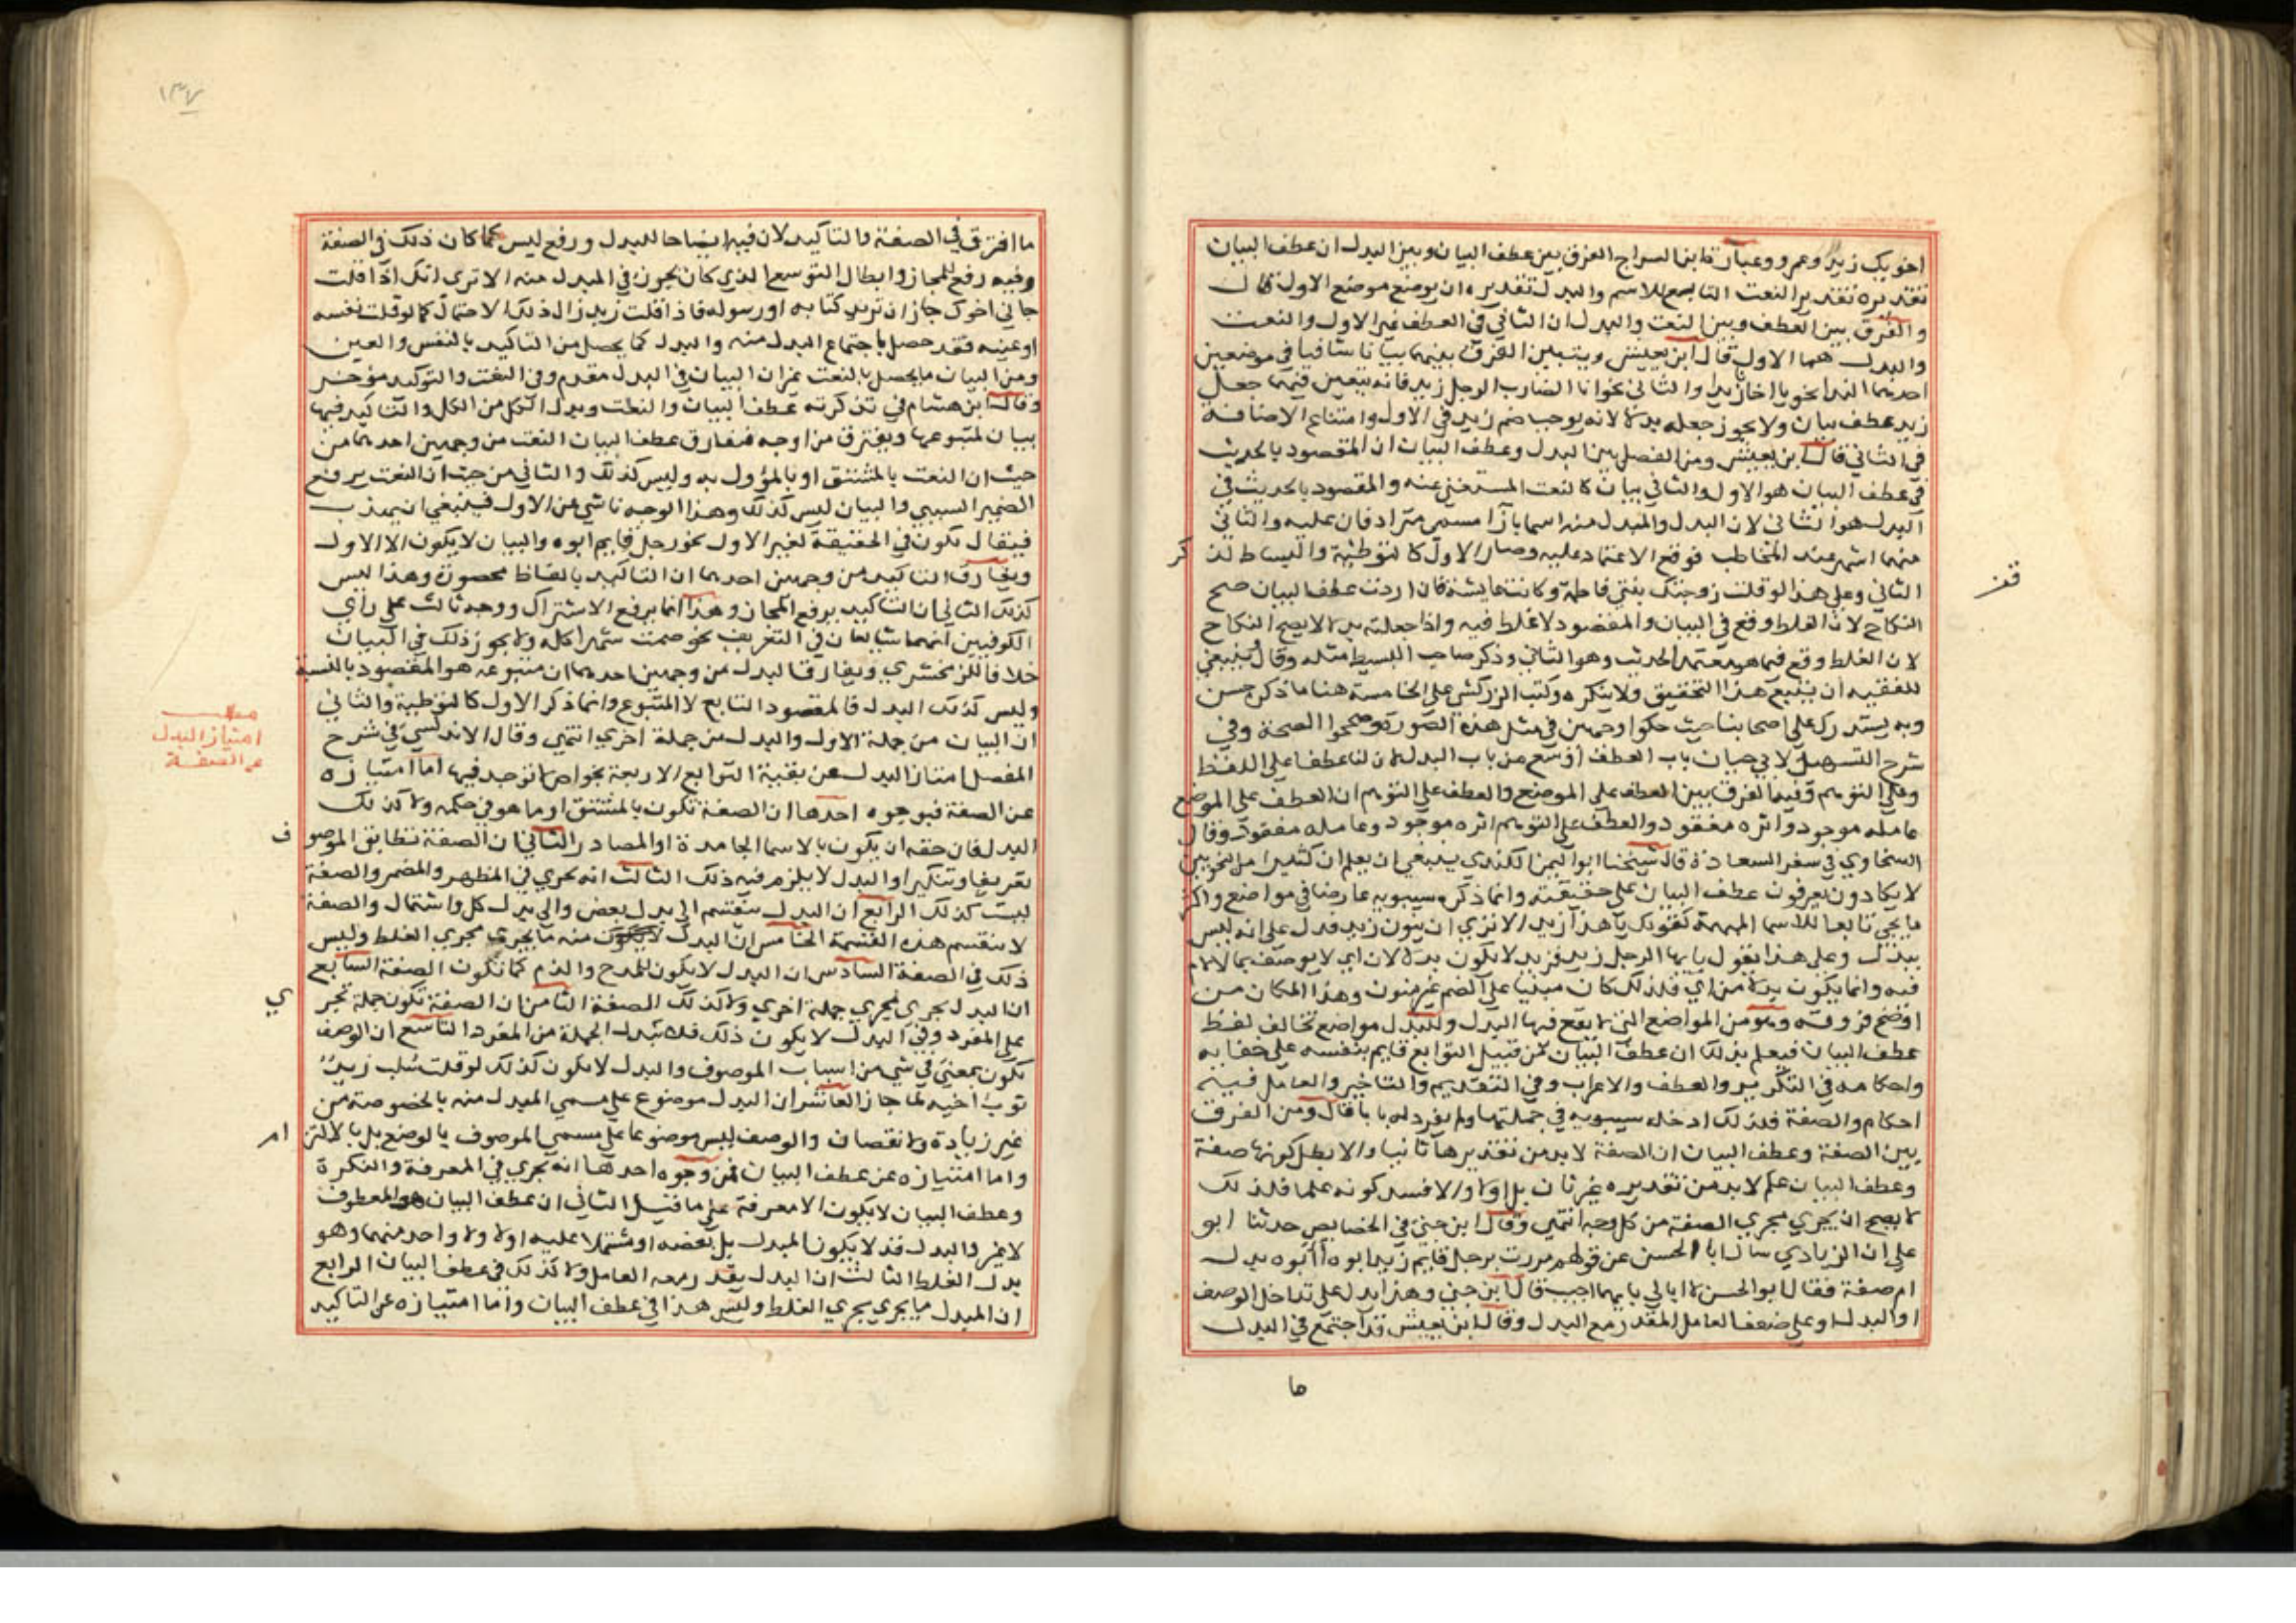 اخويك زيد وعمرو وعبارة ابن السراج الفرق بين عطف البيان وبين البدل ان عطف البيان
تقديره تقدير النعت التابع للاسم والبدل تقديره ان يوضع موضع الاول قال
والفرق بين العطف وبين النعت والبدل ان الثاني في العطف غير الاول والنعت
والبدل هما الاول قال ابن يعيش ويتبين الفرق بينهما بيانا شافيا في موضعين
احدهما الندا نحو يا اخانا زيدا والثاني نحو انا الضارب الرجل زيد فانه يتعين فيهما جعل
زيد عطف بيان ولا يجوز جعله بدلا لانه يوجب ضم زيد في الاول وامتناع الاضافة
في الثاني قال ابن يعيش ومن الفصل بين البدل وعطف البيان ان المقصود بالحديث
في عطف البيان هو الاول والثاني بيان كالنعت المستغني عنه والمقصود بالحديث في
البدل هو الثاني لان البدل والمبدل منه اسمان بازا مسمى مترادفان عليه والثاني
منهما اشهر عند المخاطب فوقع الاعتماد عليه وصار الاول كالتوطئة والبساط لذكر
الثاني وعلى هذا لو قلت زوجتك بنتي فاطمة وكانت عايشة فان اردت عطف البيان صح
النكاح لان الغلط وقع في البيان والمقصود لا غلط فيه واذا جعلته بدلا لا يصح النكاح
لان الغلط وقع فيما هو معتمد الحديث وهو الثاني وذكر صاحب البسيط مثله وقال ينبغي
للفقيه ان يتبع هذا التحقيق ولا ينكره وكتب الزركشي على الحاشية هنا ما ذكر حسن
وبه يستدرك على اصحابنا حيث حكوا وجهين في مثل هذه الصورة وصححوا الصحة وفي
شرح التسهيل لابي حيان باب العطف اوسع من باب البدل لان لنا عطفا على اللفظ
وعلى التوهم وفيما الفرق بين العطف على الموضع والعطف على التوهم ان العطف على الموضع
عامله موجود واثره مفقود والعطف على التوهم اثره موجود وعامله مفقود وقال
السخاوي في سفر السعادة قال شيخنا ابو اليمن الكندي ينبغي ان يعلم ان كثيرا من النحويين
لا يكادون يعرفون عطف البيان على حقيقته وانما ذكره سيبويه عارضا في مواضع واكثر
ما يجي تابعا للاسما المبهمة كقولك يا هذا زيد الا ترى ان ينون زيد فدل على انه ليس
ببدل وعلى هذا تقول يا ايها الرجل زيد فزيد لا يكون بدلا لان اي لا يوصف بما لا لام
فيه وانما يكون بدلا من اي فلذلك كان مبنيا على الضم غير منون وهذا المكان من
اوضح فروقه وهو من المواضع التي لا يقع فيها البدل وللبدل مواضع تخالف لفظ
عطف البيان فيعلم بذلك ان عطف البيان من قبيل التوابع قايم بنفسه على خفا به
واحكامه في التكرير والعطف والاعراب وفي التقديم والتاخير والعامل فيه
احكام والصفة فلذلك ادخله سيبويه في جملتها ولم يفرد له بابا قال ومن الفرق
بين الصفة وعطف البيان ان الصفة لابد من تقديرها ثانيا والا بطل كونها صفة
وعطف البيان علم لابد من تقديره غير ثان بل اولا والا فسد كونه علما فلذلك
لا يصح ان يجري مجرى الصفة من كل وجه انتهى وقال ابن جني في الخصايص حدثنا ابو
علي ان الزيادي سال ابا الحسن عن قولهم مررت برجل قايم زيد ابوه أابوه بدل
ام صفة فقال ابو الحسن لا ابالي بايهما اجبت قال ابن جني وهذا يدل على تداخل الوصف
او البدل وعلى ضعف العامل المقدر مع البدل وقال ابن يعيش قد اجتمع في البدل
ما
١٣٧
ما افترق في الصفة والتاكيد لان فيه ايضاحا للمبدل ورفع لبس كما كان ذلك في الصفة
وفيه رفع للمجاز وابطال التوسع الذي كان يجوز في المبدل منه الا ترى انك اذا قلت
جاني اخوك جاز ان تريد كتابه او رسوله فاذا قلت زيد زال ذلك الاحتمال كما لو قلت نفسه
او عينه فقد حصل باجتماع البدل منه والبدل كما يحصل من التاكيد بالنفس والعين
ومن البيان ما يحصل بالنعت غير ان البيان في البدل مقدم وفي النعت والتوكيد مؤخر
وقال ابن هشام في تذكرته عطف البيان والنعت وبدل الكل من الكل والتاكيد فيها
بيان لمتبوعها ويفترق من اوجه فيفارق عطف البيان النعت من وجهين احدهما من
حيث ان النعت بالمشتق او بالمؤول به وليس كذلك والثاني من حيث ان النعت يرفع
الضمير السببي والبيان ليس كذلك وهذا الوجه ناشي من الاول فينبغي ان يهذب
فيقال يكون في الحقيقة لغير الاول نحو رجل قايم ابوه والبيان لا يكون الا الاول
ويفارق التاكيد من وجهين احدهما ان التاكيد بالفاظ محصورة وهذا ليس
كذلك الثاني ان التاكيد يرفع المجاز وهذا انما يرفع الاشتراك ووجه ثالث على راي
الكوفيين انهما يتابعان في التعريف نحو صمت شهرا كله ولا يجوز ذلك في البيان
خلافا للزمخشري ويفارق البدل من وجهين احدهما ان متبوعه هو المقصود بالنسبة
وليس كذلك البدل فالمقصود التابع لا المتبوع وانما ذكر الاول كالتوطية والثاني
ان البيان من جملة الاول والبدل من جملة اخرى انتهى وقال الاندلسي في شرح
المفصل امتاز البدل عن بقية التوابع الاربعة بخواص لا توجد فيها اما امتيازه
عن الصفة فبوجوه احدها ان الصفة تكون بالمشتق او ما هو في حكمه ولا كذلك
البدل فان حقه ان يكون بالاسما الجامدة او المصادر الثاني ان الصفة تطابق الموصوف
تعريفا وتنكيرا والبدل لا يلزم فيه ذلك الثالث انه يجري في المظهر والمضمر والصفة
ليست كذلك الرابع ان البدل ينقسم الى بدل بعض والى بدل كل واشتمال والصفة
لا تنقسم هذه القسمة الخامس ان البدل منه ما يجري مجرى الغلط وليس
ذلك في الصفة السادس ان البدل لا يكون للمدح والذم كما تكون الصفة السابع
ان البدل يجري مجرى جملة اخرى ولا كذلك الصفة الثامن ان الصفة تكون جملة تجري
على المفرد وفي البدل لا يكون ذلك فلا تبدل الجملة من المفرد التاسع ان الوصف
يكون بمعنى في شي من اسباب الموصوف والبدل لا يكون كذلك لو قلت سلب زيد
ثوب اخيه لما جاز العاشر ان البدل موضوع على مسمى المبدل منه بالخصوصية من
غير زيادة ولا نقصان والوصف ليس موضوعا على مسمى الموصوف بالوضع بل بالالتزام
واما امتيازه عن عطف البيان فمن وجوه احدها انه يجري في المعرفة والنكرة
وعطف البيان لا يكون الا معرفة على ما قيل الثاني ان عطف البيان هو المعطوف
لا غير والبدل قد لا يكون المبدل بل بعضه او مشتملا عليه اولا ولا واحد منهما وهو
بدل الغلط الثالث ان البدل يقدر معه العامل ولا كذلك في عطف البيان الرابع
ان المبدل ما يجري مجرى الغلط وليس هذا في عطف البيان واما امتيازه عن التاكيد
مطلب
امتياز البدل
عن الصفة